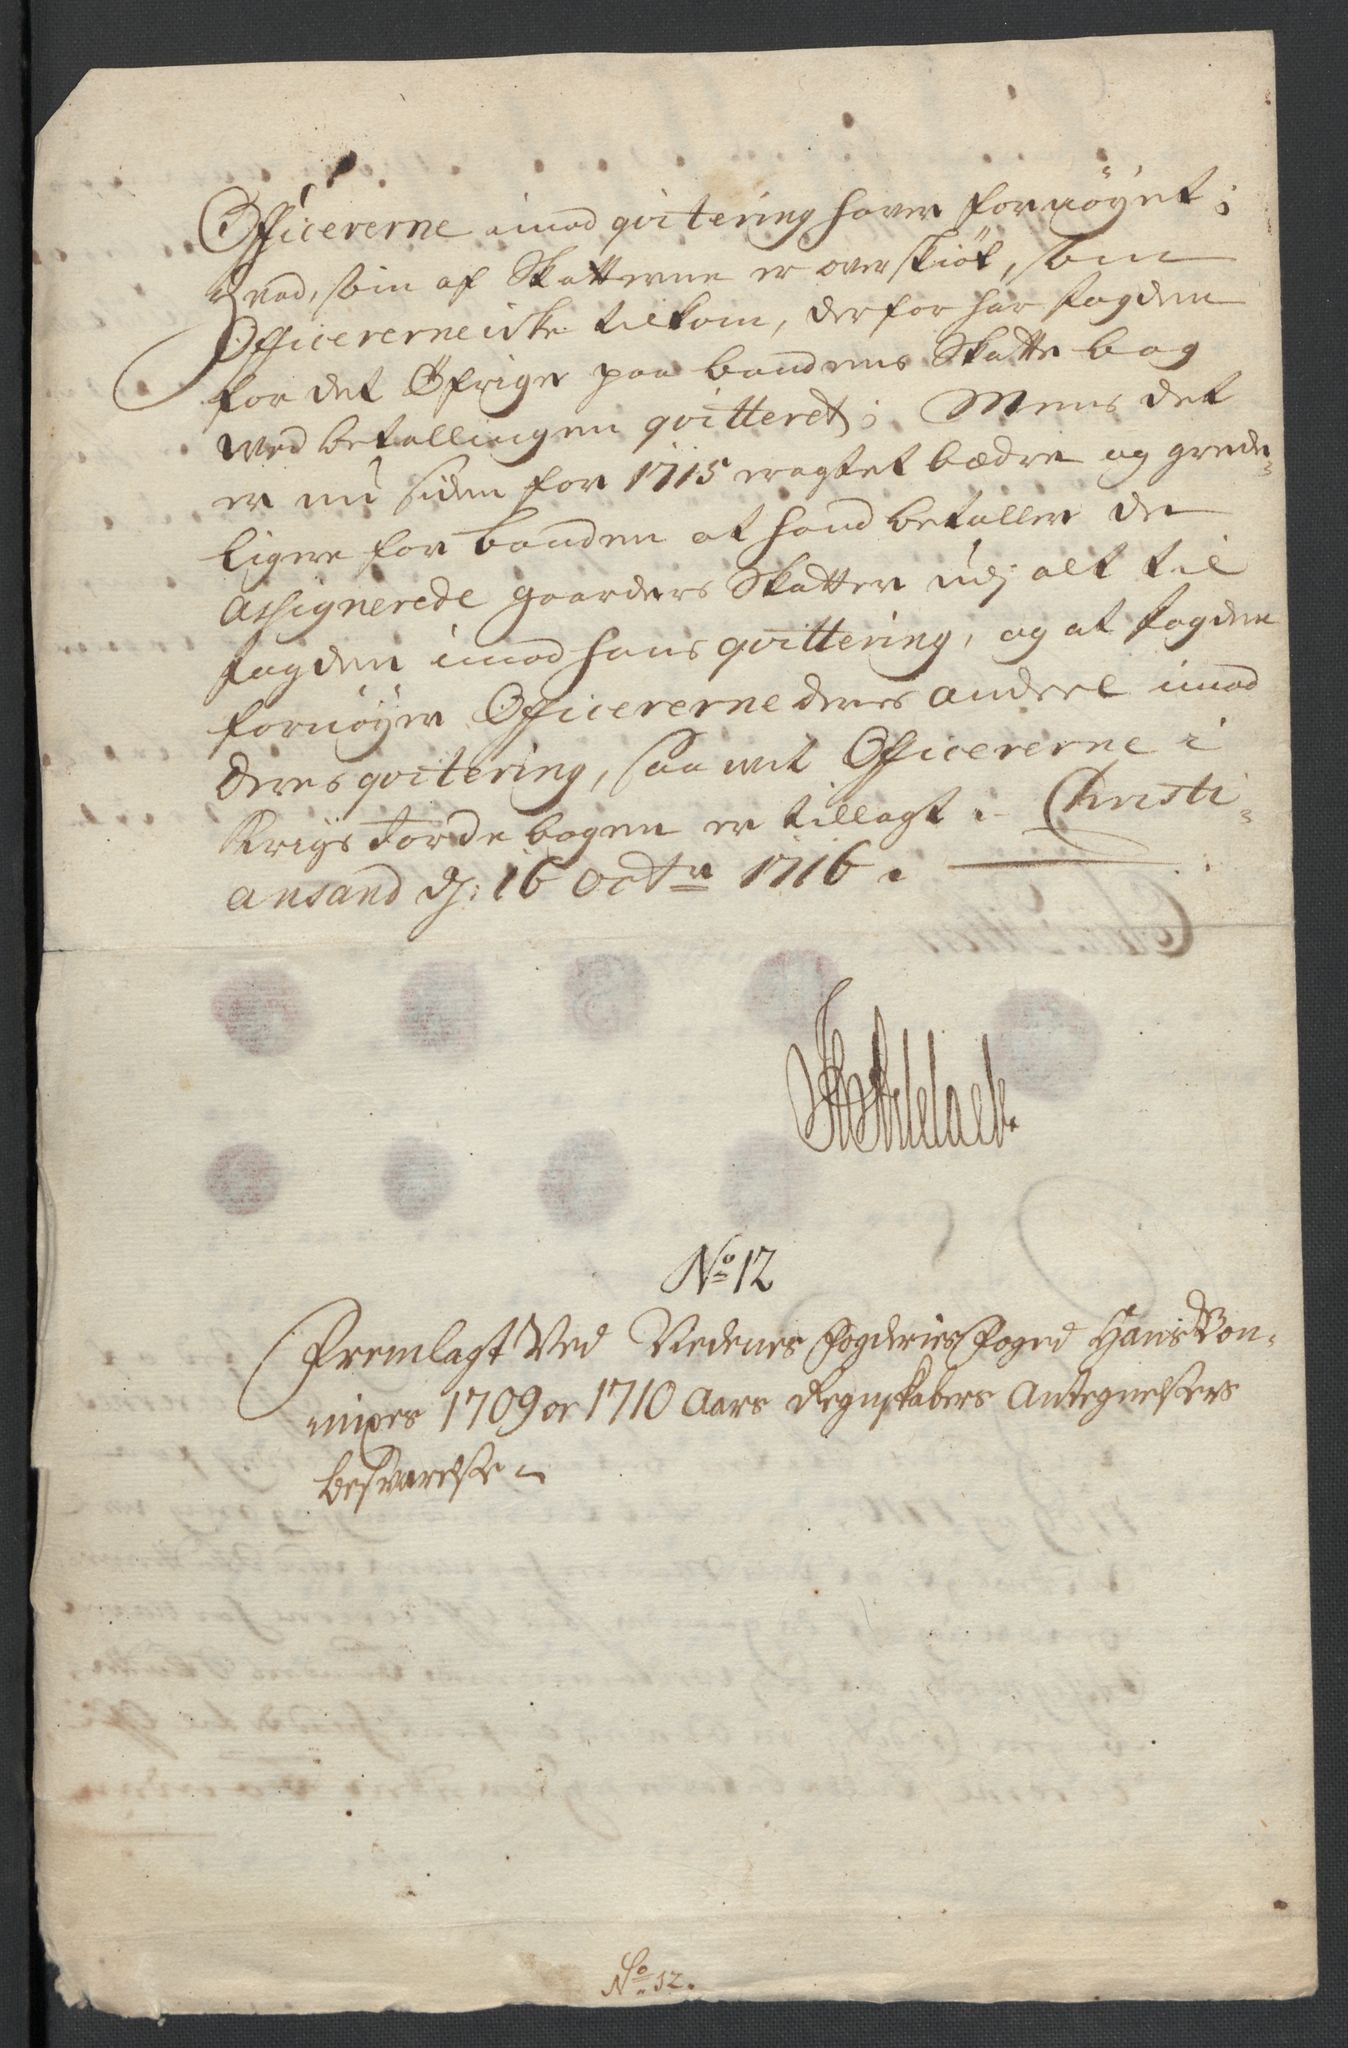 Officererne imod qvitering haver fornöyet;
Hvad, som af Skatterne er overskiöt, som
Officererne icke tilkom, derfor har fogden
for det Öfrige paa bondens Skatte bog
ved betallingen qvitteret; Mens det
er nu siden for 1715 eragtet bædre og grede-
ligere for bonden at hand betaller de
Assignerede gaarders Skatter udj alt til
fogden imod hans qvittering, og at fogden
fornöyer Officererne deres andeel imod
deres qvitering, saa vit Officererne i
Krigs Jordebogen er tillagt. Christi-
ansand dj: 16 Octr 1716.
No 12
Fremlagt Ved Nedenes Fogderies Foged Hans Bon-
nixes 1709 oc 1710 Aars Regnskabers Antegnelsers
besvarelse
No 12.